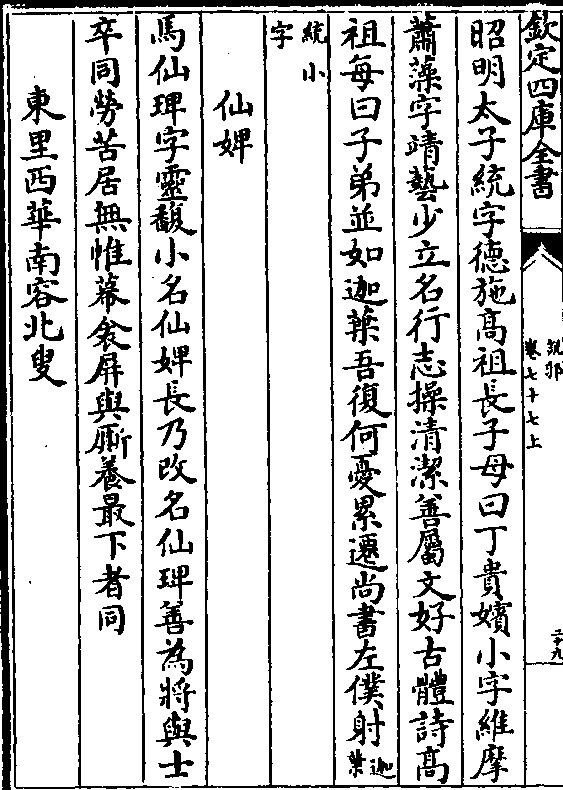 欽定四庫全書
說郛
卷七十七上
二十九
昭明太子統字德施高祖長子母曰丁貴嬪小字維摩
蕭藻字靖藝少立名行志操清潔善屬文好古體詩高
祖每曰子弟並如迦葉吾復何憂累遷尚書左僕射迦葉
統小字
仙婢
馬仙琕字靈馥小名仙婢長乃改名仙琕善為將與士
卒同勞苦居無帷幕衾屏與廝養最下者同
東里西華南容北叟